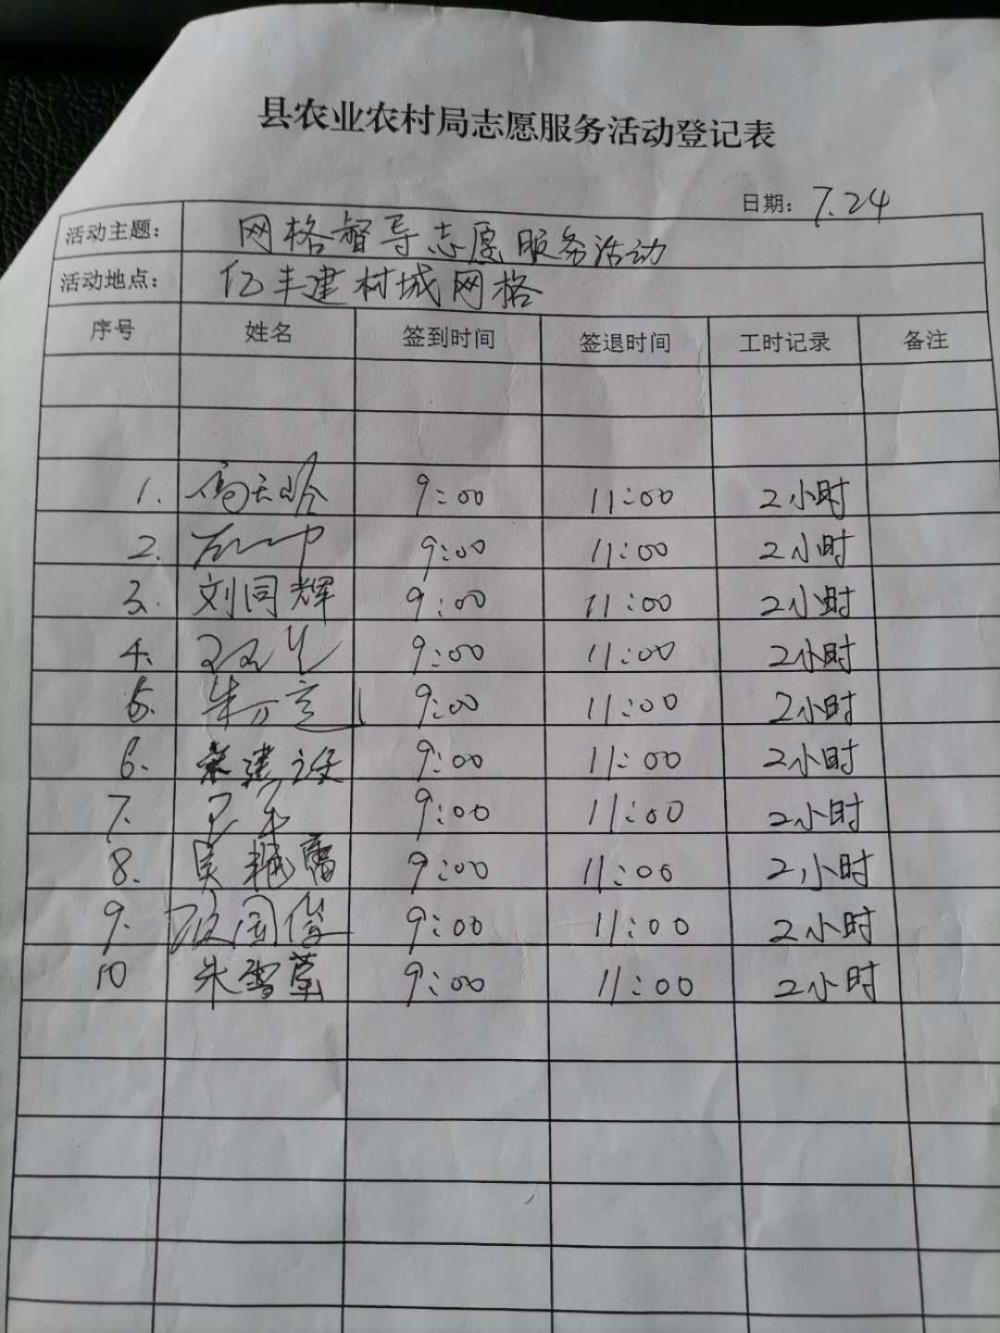 县农业农村局志愿服务活动登记表
日期: 7.24
活动主题: 网格督导志愿服务活动
活动地点: 亿丰建材城网格
序号 姓名 签到时间 签退时间 工时记录 备注
1. 9:00 11:00 2小时
2. 9:00 11:00 2小时
3. 刘同辉 9:00 11:00 2小时
4. 9:00 11:00 2小时
5. 9:00 11:00 2小时
6. 建设 9:00 11:00 2小时
7. 9:00 11:00 2小时
8. 吴 9:00 11:00 2小时
9. 国俊 9:00 11:00 2小时
10 朱雪 9:00 11:00 2小时